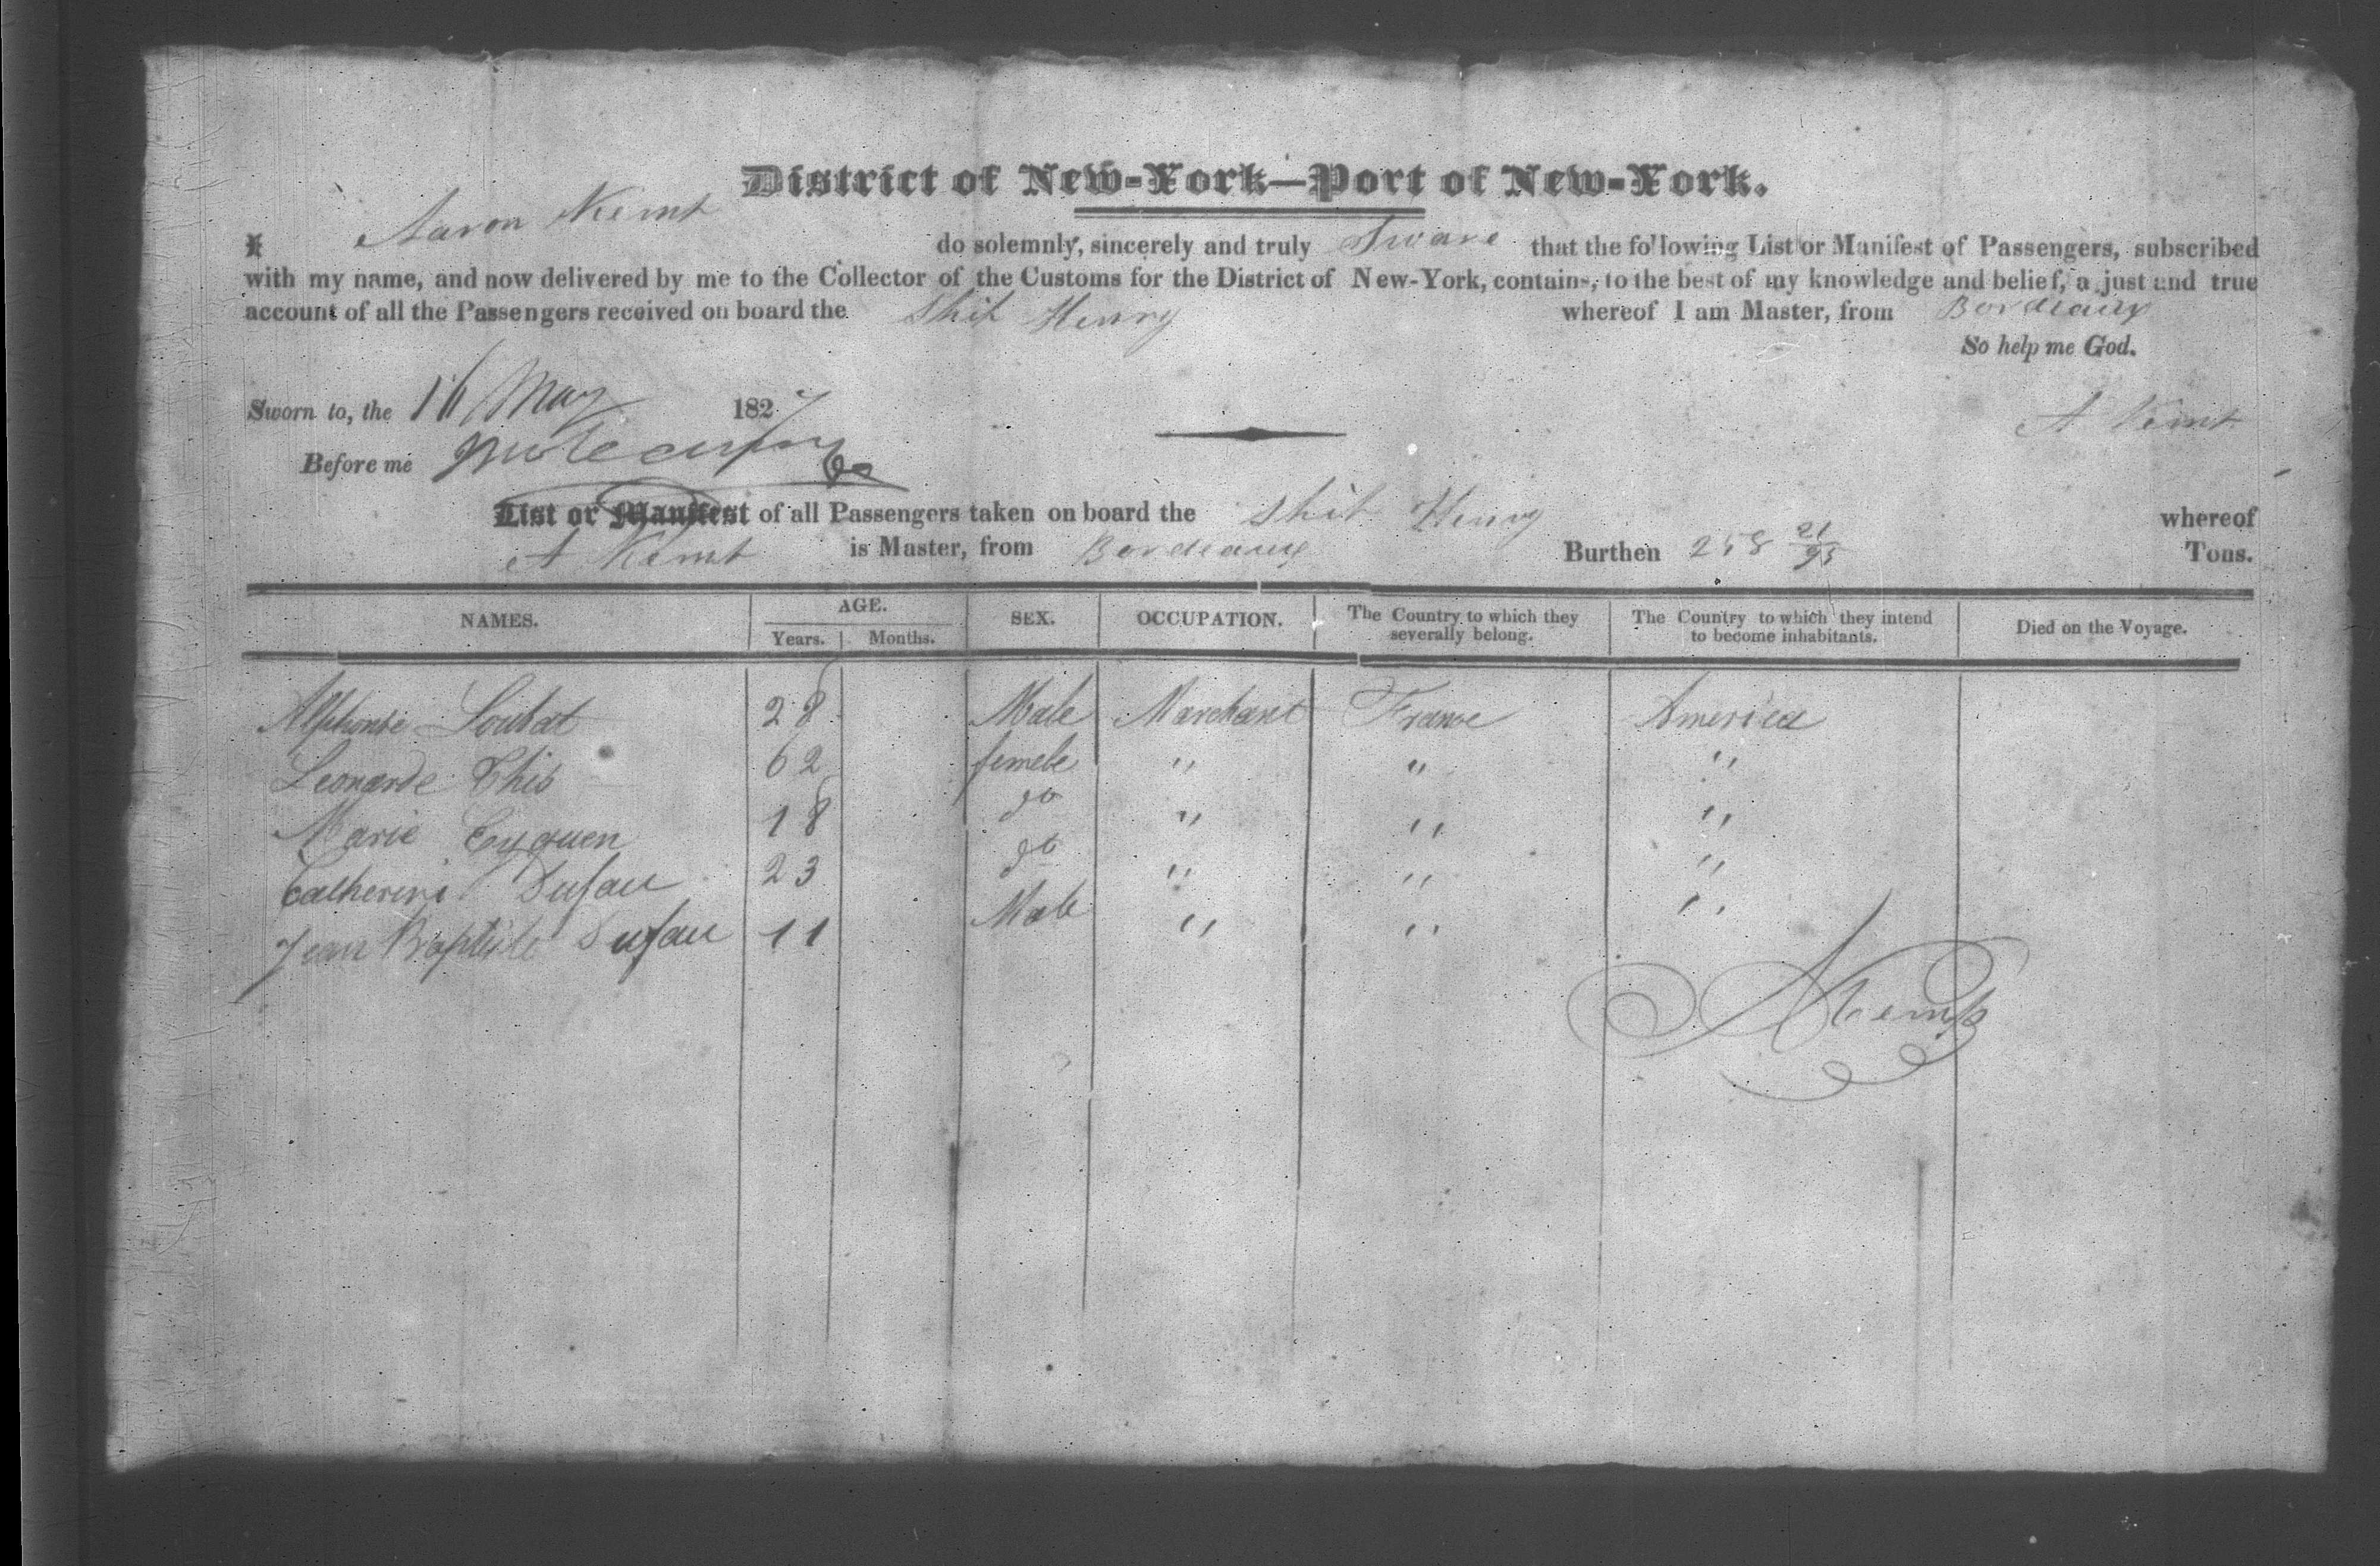 District of New-York—Port of New-York.
I Aaron Kemt do solemnly, sincerely and truly Sware that the following List or Manifest of Passengers, subscribed
with my name, and now delivered by me to the Collector of the Customs for the District of New-York, contains, to the best of my knowledge and belief, a just and true
account of all the Passengers received on board the Ship Henry whereof I am Master, from Bordeaux
So help me God.
Sworn to, the 16 May 1827 A Kemt
Before me
List or Manifest of all Passengers taken on board the Ship Henry whereof
A Kemt is Master, from Bordeaux Burthen 258 21/95 Tons.
NAMES. AGE. SEX. OCCUPATION. The Country to which they severally belong. The Country to which they intend to become inhabitants. Died on the Voyage.
Years. Months.
Alphonse Loubat 28 Male Marchant France America
Leonarde This 62 femele " " "
Marie 18 do " " "
Catherine Dufau 23 do " " "
Jean Baptiste Dufau 11 Male " " "
A Kemp